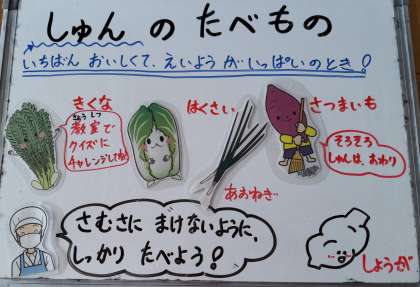 しゅんのたべもの
いちばん おいしくて、えいようがいっぱいのとき!
きくな
きょうしつ
教室で
クイズに
チャレンジしてね
はくさい
あおねぎ
さつまいも
そろそろ
しゅんは、おわり
さむさに まけないように、
しっかり たべよう!
しょうが